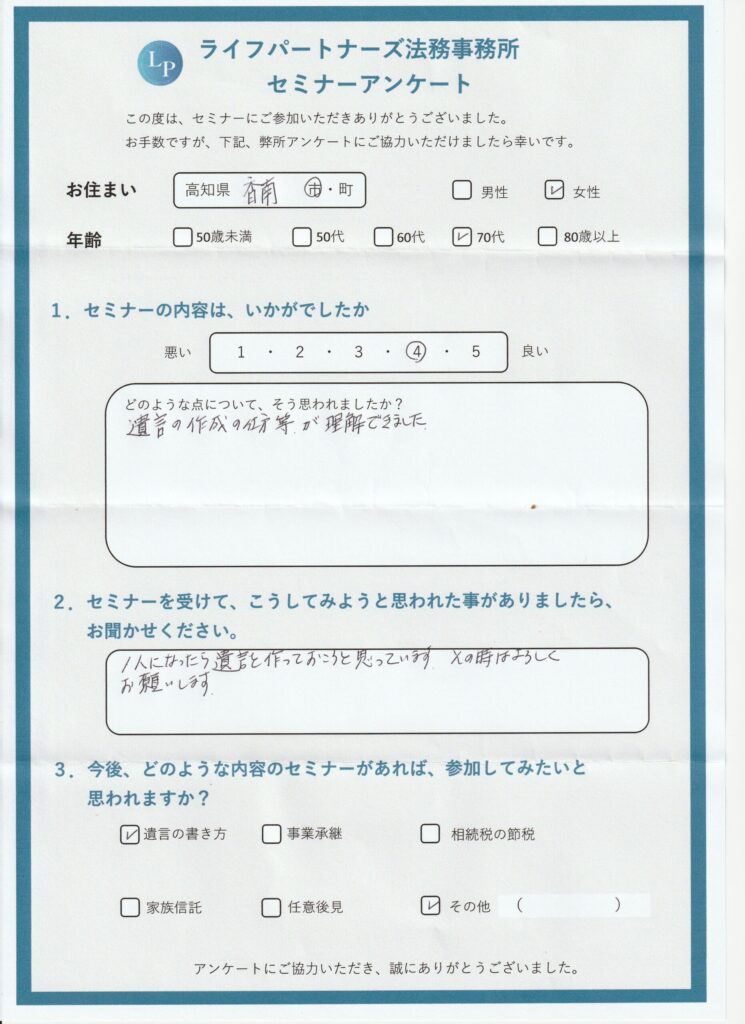 LP
ライフパートナーズ法務事務所
セミナーアンケート
この度は、セミナーにご参加いただきありがとうございました。
お手数ですが、下記、弊所アンケートにご協力いただけましたら幸いです。
お住まい 高知県 香南 市・町 男性 女性
年齢 50歳未満 50代 60代 70代 80歳以上
1．セミナーの内容は、いかがでしたか
悪い 1 ・ 2 ・ 3 ・ 4 ・ 5 良い
どのような点について、そう思われましたか？
遺言の作成の仕方等が理解できました
2．セミナーを受けて、こうしてみようと思われた事がありましたら、
お聞かせください。
1人になったら遺言を作っておこうと思っています その時はよろしく
お願いします
3．今後、どのような内容のセミナーがあれば、参加してみたいと
思われますか？
遺言の書き方 事業承継 相続税の節税
家族信託 任意後見 その他 （ ）
アンケートにご協力いただき、誠にありがとうございました。